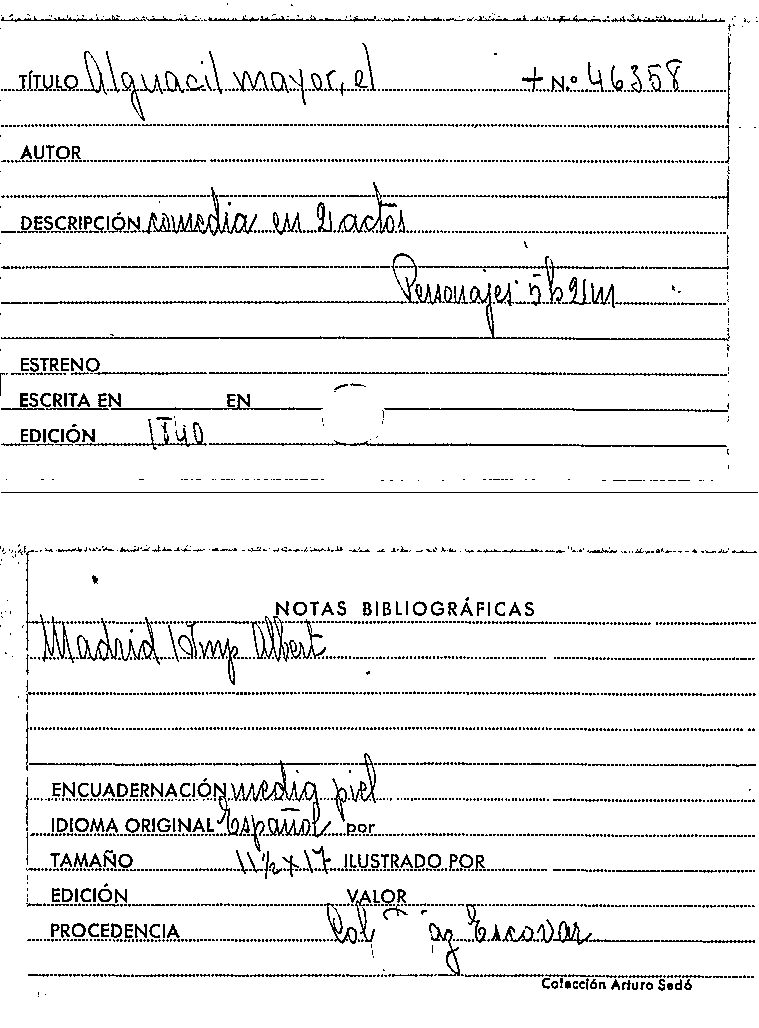 TÍTULO Alguacil mayor, el + N.º 46358
AUTOR
DESCRIPCIÓN comedia en 2 actos
Personajes 5h 2m
ESTRENO
ESCRITA EN EN
EDICIÓN 1840
NOTAS BIBLIOGRÁFICAS
Madrid Imp Albert
ENCUADERNACIÓN media piel
IDIOMA ORIGINAL Español por
TAMAÑO 11½ x 17 ILUSTRADO POR
EDICIÓN VALOR
PROCEDENCIA Col az Escovar
Colección Arturo Sedó